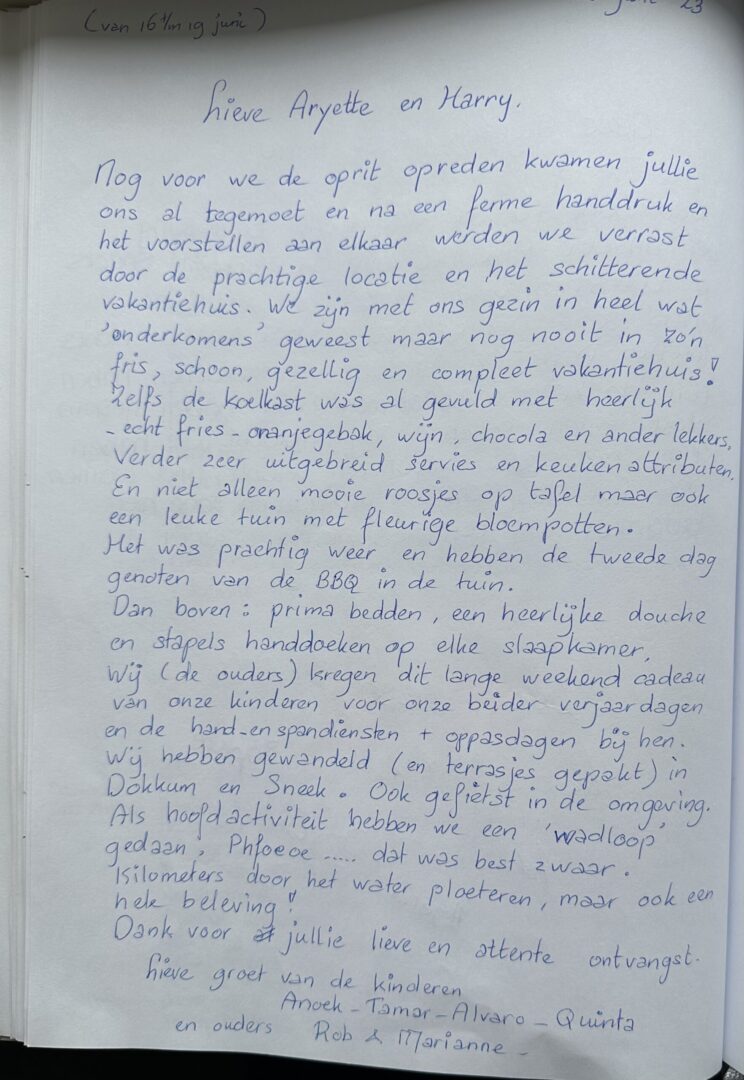 23
(van 16 t/m 19 juni)
Lieve Aryette en Harry.
Nog voor we de oprit opreden kwamen jullie
ons al tegemoet en na een ferme handdruk en
het voorstellen aan elkaar werden we verrast
door de prachtige locatie en het schitterende
vakantiehuis. We zijn met ons gezin in heel wat
'onderkomens' geweest maar nog nooit in zo'n
fris, schoon, gezellig en compleet vakantiehuis!
Zelfs de koelkast was al gevuld met heerlijk
- echt fries - oranjegebak, wijn, chocola en ander lekkers.
Verder zeer uitgebreid servies en keukenattributen.
En niet alleen mooie roosjes op tafel maar ook
een leuke tuin met fleurige bloempotten.
Het was prachtig weer en hebben de tweede dag
genoten van de BBQ in de tuin.
Dan boven : prima bedden, een heerlijke douche
en stapels handdoeken op elke slaapkamer.
Wij (de ouders) kregen dit lange weekend cadeau
van onze kinderen voor onze beider verjaardagen
en de hand-en spandiensten + oppasdagen bij hen.
Wij hebben gewandeld (en terrasjes gepakt) in
Dokkum en Sneek. Ook gefietst in de omgeving.
Als hoofdactiviteit hebben we een 'wadloop'
gedaan, Phfoeoe ..... dat was best zwaar.
Kilometers door het water ploeteren, maar ook een
hele beleving!
Dank voor jullie lieve en attente ontvangst.
Lieve groet van de kinderen
Anoek - Tamar - Alvaro - Quinta
en ouders Rob & Marianne -